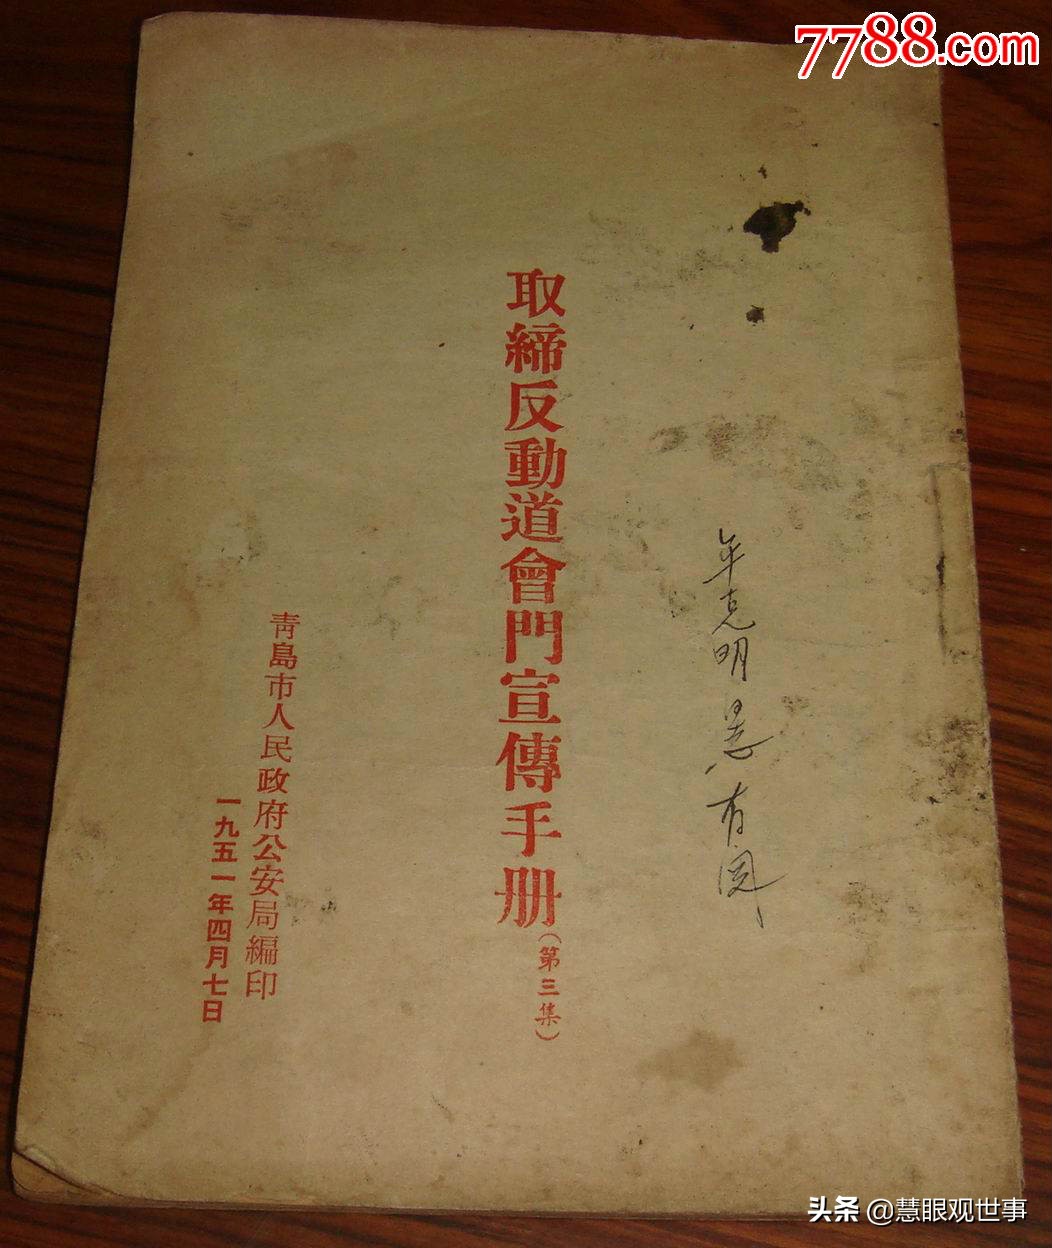 7788.com
克明
取締反動道會門宣傳手册(第三集)
青島市人民政府公安局編印
一九五一年四月七日
头条 @慧眼观世事